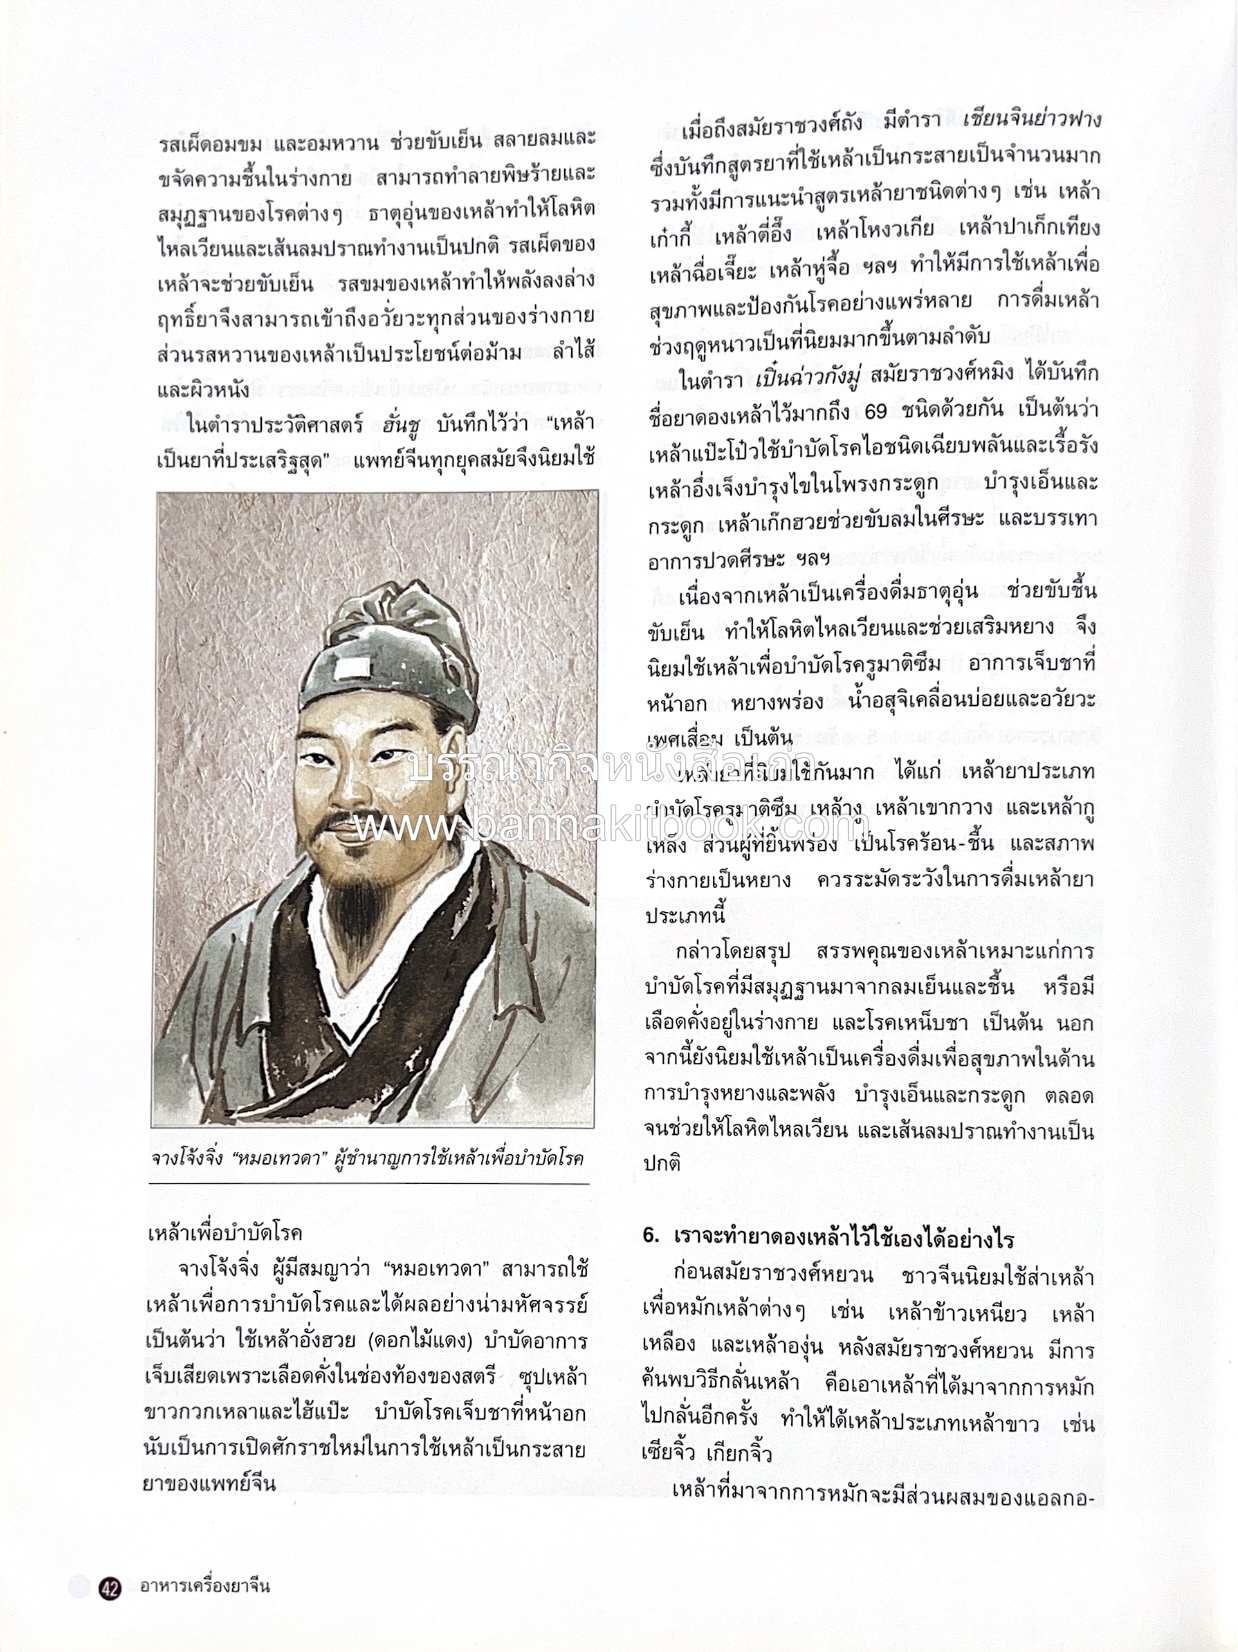 รสเผ็ดอมขม และอมหวาน ช่วยขับเย็น สลายลมและ
ขจัดความชื้นในร่างกาย สามารถทำลายพิษร้ายและ
สมุฏฐานของโรคต่างๆ ธาตุอุ่นของเหล้าทำให้โลหิต
ไหลเวียนและเส้นลมปราณทำงานเป็นปกติ รสเผ็ดของ
เหล้าจะช่วยขับเย็น รสขมของเหล้าทำให้พลังลงล่าง
ฤทธิ์ยาจึงสามารถเข้าถึงอวัยวะทุกส่วนของร่างกาย
ส่วนรสหวานของเหล้าเป็นประโยชน์ต่อม้าม ลำไส้
และผิวหนัง
ในตำราประวัติศาสตร์ ฮั่นชู บันทึกไว้ว่า “เหล้า
เป็นยาที่ประเสริฐสุด” แพทย์จีนทุกยุคสมัยจึงนิยมใช้
จางโจ้งจิ่ง “หมอเทวดา” ผู้ชำนาญการใช้เหล้าเพื่อบำบัดโรค
เหล้าเพื่อบำบัดโรค
จางโจ้งจิ่ง ผู้มีสมญาว่า “หมอเทวดา” สามารถใช้
เหล้าเพื่อการบำบัดโรคและได้ผลอย่างน่ามหัศจรรย์
เป็นต้นว่า ใช้เหล้าอั่งฮวย (ดอกไม้แดง) บำบัดอาการ
เจ็บเสียดเพราะเลือดคั่งในช่องท้องของสตรี ซุปเหล้า
ขาวกวกเหลาและไฮ้แป๊ะ บำบัดโรคเจ็บชาที่หน้าอก
นับเป็นการเปิดศักราชใหม่ในการใช้เหล้าเป็นกระสาย
ยาของแพทย์จีน
เมื่อถึงสมัยราชวงศ์ถัง มีตำรา เชียนจินย่าวฟาง
ซึ่งบันทึกสูตรยาที่ใช้เหล้าเป็นกระสายเป็นจำนวนมาก
รวมทั้งมีการแนะนำสูตรเหล้ายาชนิดต่างๆ เช่น เหล้า
เก๋ากี้ เหล้าตี่อึ๊ง เหล้าโหงวเกีย เหล้าปาเก็กเทียง
เหล้าฉื่อเจี๊ยะ เหล้าหู่จื้อ ฯลฯ ทำให้มีการใช้เหล้าเพื่อ
สุขภาพและป้องกันโรคอย่างแพร่หลาย การดื่มเหล้า
ช่วงฤดูหนาวเป็นที่นิยมมากขึ้นตามลำดับ
ในตำรา เปิ๋นฉ่าวกังมู่ สมัยราชวงศ์หมิง ได้บันทึก
ชื่อยาดองเหล้าไว้มากถึง 69 ชนิดด้วยกัน เป็นต้นว่า
เหล้าแป๊ะโป๋วใช้บำบัดโรคไอชนิดเฉียบพลันและเรื้อรัง
เหล้าอึ่งเจ็งบำรุงไขในโพรงกระดูก บำรุงเอ็นและ
กระดูก เหล้าเก๊กฮวยช่วยขับลมในศีรษะ และบรรเทา
อาการปวดศีรษะ ฯลฯ
เนื่องจากเหล้าเป็นเครื่องดื่มธาตุอุ่น ช่วยขับชื้น
ขับเย็น ทำให้โลหิตไหลเวียนและช่วยเสริมหยาง จึง
นิยมใช้เหล้าเพื่อบำบัดโรครูมาติซึม อาการเจ็บชาที่
หน้าอก หยางพร่อง น้ำอสุจิเคลื่อนบ่อยและอวัยวะ
เพศเสื่อม เป็นต้น
เหล้ายาที่นิยมใช้กันมาก ได้แก่ เหล้ายาประเภท
บำบัดโรครูมาติซึม เหล้างู เหล้าเขากวาง และเหล้ากู
เหลง ส่วนผู้ที่ยิ้นพร่อง เป็นโรคร้อน-ชื้น และสภาพ
ร่างกายเป็นหยาง ควรระมัดระวังในการดื่มเหล้ายา
ประเภทนี้
กล่าวโดยสรุป สรรพคุณของเหล้าเหมาะแก่การ
บำบัดโรคที่มีสมุฏฐานมาจากลมเย็นและชื้น หรือมี
เลือดคั่งอยู่ในร่างกาย และโรคเหน็บชา เป็นต้น นอก
จากนี้ยังนิยมใช้เหล้าเป็นเครื่องดื่มเพื่อสุขภาพในด้าน
การบำรุงหยางและพลัง บำรุงเอ็นและกระดูก ตลอด
จนช่วยให้โลหิตไหลเวียน และเส้นลมปราณทำงานเป็น
ปกติ
6. เราจะทำยาดองเหล้าไว้ใช้เองได้อย่างไร
ก่อนสมัยราชวงศ์หยวน ชาวจีนนิยมใช้ส่าเหล้า
เพื่อหมักเหล้าต่างๆ เช่น เหล้าข้าวเหนียว เหล้า
เหลือง และเหล้าองุ่น หลังสมัยราชวงศ์หยวน มีการ
ค้นพบวิธีกลั่นเหล้า คือเอาเหล้าที่ได้มาจากการหมัก
ไปกลั่นอีกครั้ง ทำให้ได้เหล้าประเภทเหล้าขาว เช่น
เซียจิ้ว เกียกจิ้ว
เหล้าที่มาจากการหมักจะมีส่วนผสมของแอลกอ-
บรรณากิจหนังสือเก่า
www.bannakitbook.com
42 อาหารเครื่องยาจีน